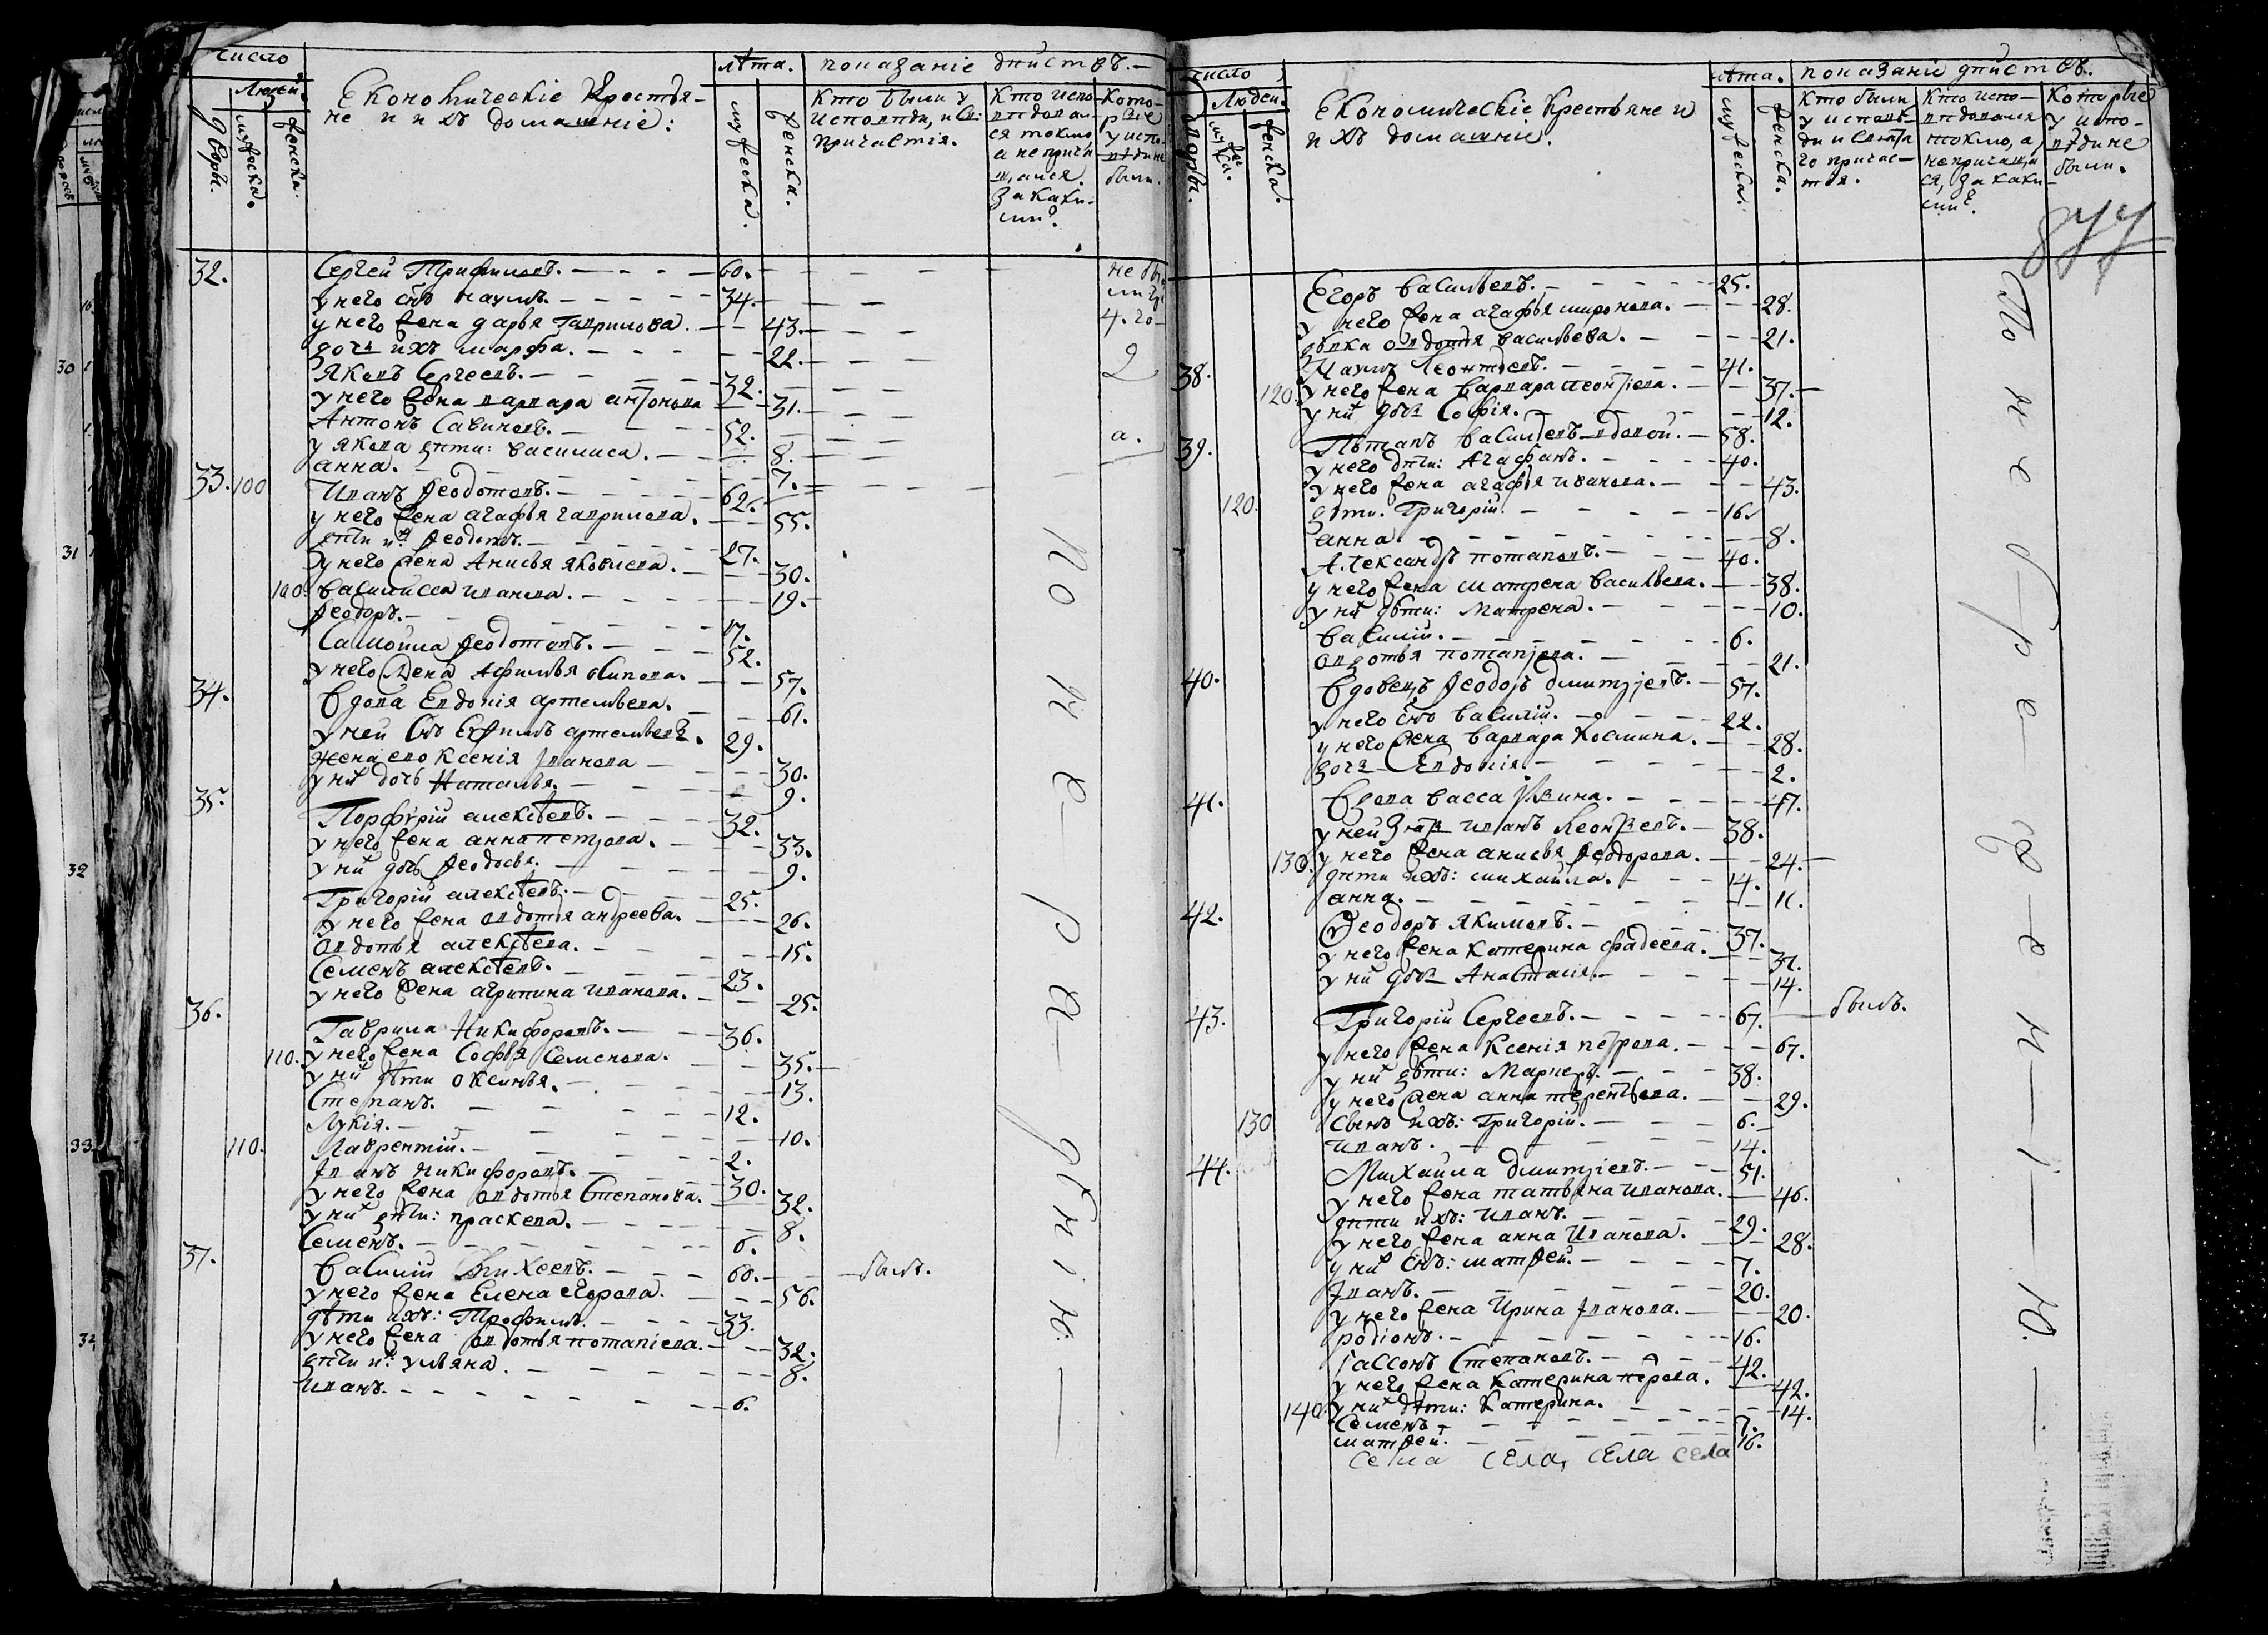 число
Людей.
дворы.
мужеска.
женска.
Економическіе Крестья-
не и ихъ домашніе:
лѣта.
мужеска.
женска.
показаніе дѣйствъ.—
Кто были у
исповѣди, и св:
причастія.
Кто испо-
вѣдовал-
ся токмо
а не прича-
щался.
за каки-
ми?
Кото-
рые
у испо-
вѣди не
были.
32. Сергей Трифиловъ. 60.
у него снъ наумъ. 34.
у него жена дарья Гаврилова. 43.
дочь ихъ марфа. 22.
Яковъ Сергеевъ. 32.
у него жена варвара антонова 31.
Антонъ Савиновъ. 52.
у якова дѣти: василиса. 8.
анна. 7.
33. 100 Иванъ Ѳеодотовъ. 62.
у него жена агафья гаврилова. 55.
дѣти их: Ѳеодотъ. 27.
у него жена Анисья яковлева. 30.
100. василисса иванова. 19.
Ѳеодоръ. 17.
Самойла Ѳеодотовъ. 52.
у него жена Афимья осипова. 57.
34. Вдова Евдокія артемьева. 61.
у ней снъ Ефимъ артемьевъ. 29.
жена ево Ксенія Іванова 30.
у них дочь Наталья. 9.
35. Порфурій алексѣевъ. 32.
у него жена анна петрова. 33.
у них дочь Ѳеодосья. 9.
Григорій алексѣевъ. 25.
у него жена авдотья андреева. 26.
Авдотья алексѣева. 15.
Семенъ алексѣевъ. 23.
у него жена агрипина иванова. 25.
36. Гаврила Никифоровъ. 36.
110. у него жена Софья Семенова. 35.
у них дѣти оксинья. 13.
Степанъ. 12.
Лукія. 10.
110. Лаврентій. 2.
Іванъ никифоровъ. 30.
у него жена авдотья Степанова. 32.
у них дѣти: праскева. 8.
Семенъ. 6.
37. Василій 60. былъ.
у него жена Елена егорова. 56.
дѣти ихъ: Трофимъ. 33.
у него жена авдотья потапіева. 32.
дѣти их: ульяна. 8.
иванъ. 6.
по нера дѣнію.
число
Людей.
дворы.
женска.
Економическіе Крестьяне и
ихъ домашніе.
лѣта.
мужеска.
женска.
показаніе дѣйствъ.
Кто были
у исповѣ-
ди и свята
го причас-
тія.
Кто испо-
вѣдовался
токмо, а
не причаща
ся, за каки-
ми?
Которые
у испо-
вѣди не
были.
Егоръ васильевъ. 25.
у него жена агафья миронова. 28.
дѣвка авдотья васильева. 21.
38. Наумъ Леонтьевъ. 41.
120. у него жена варвара леонтіева. 37.
у них дочь Софія. 12.
39. Потапъ васильевъ вдовой. 58.
у него дѣти: Агафонъ. 40.
у него жена агафья иванова. 43.
120. дѣти: Григорій. 16.
анна. 8.
Александръ потаповъ. 40.
у него жена матрена васильева. 38.
у них дѣти: Матрена. 10.
василій. 6.
авдотья потапіева. 21.
40. Вдовецъ Ѳеодоръ дмитріевъ. 57.
у него снъ василій. 22.
у него жена варвара космина. 28.
дочь Евдокія. 2.
41. Вдова васса 47.
у ней зять иванъ Леонтьевъ. 38.
130. у него жена анисья Ѳеодорова. 24.
дѣти ихъ: михайла. 14.
анна. 11.
42. Ѳеодоръ якимовъ. 37.
у него жена Катерина фадеева. 31.
у них дочь Анастасія. 14.
43. Григорій Сергеевъ. 67. былъ.
у него жена Ксенія петрова. 67.
у них дѣти: Маркелъ. 38.
у него жена анна терентьева. 29.
130 сынъ ихъ: Григорій. 6.
иванъ. 14.
44. Михайла дмитріевъ. 51.
у него жена татьяна иванова. 46.
дѣти ихъ: иванъ. 29.
у него жена анна Иванова. 28.
у них снъ: матѳей. 7.
Іванъ. 20.
у него жена Ирина Іванова. 20.
родіонъ. 16.
Сассонъ Степановъ. 42.
у него жена Катерина 42.
140. у них дѣти: Катерина. 14.
Семенъ 7.
матѳей. 16.
Села села, села села
По небреженію.